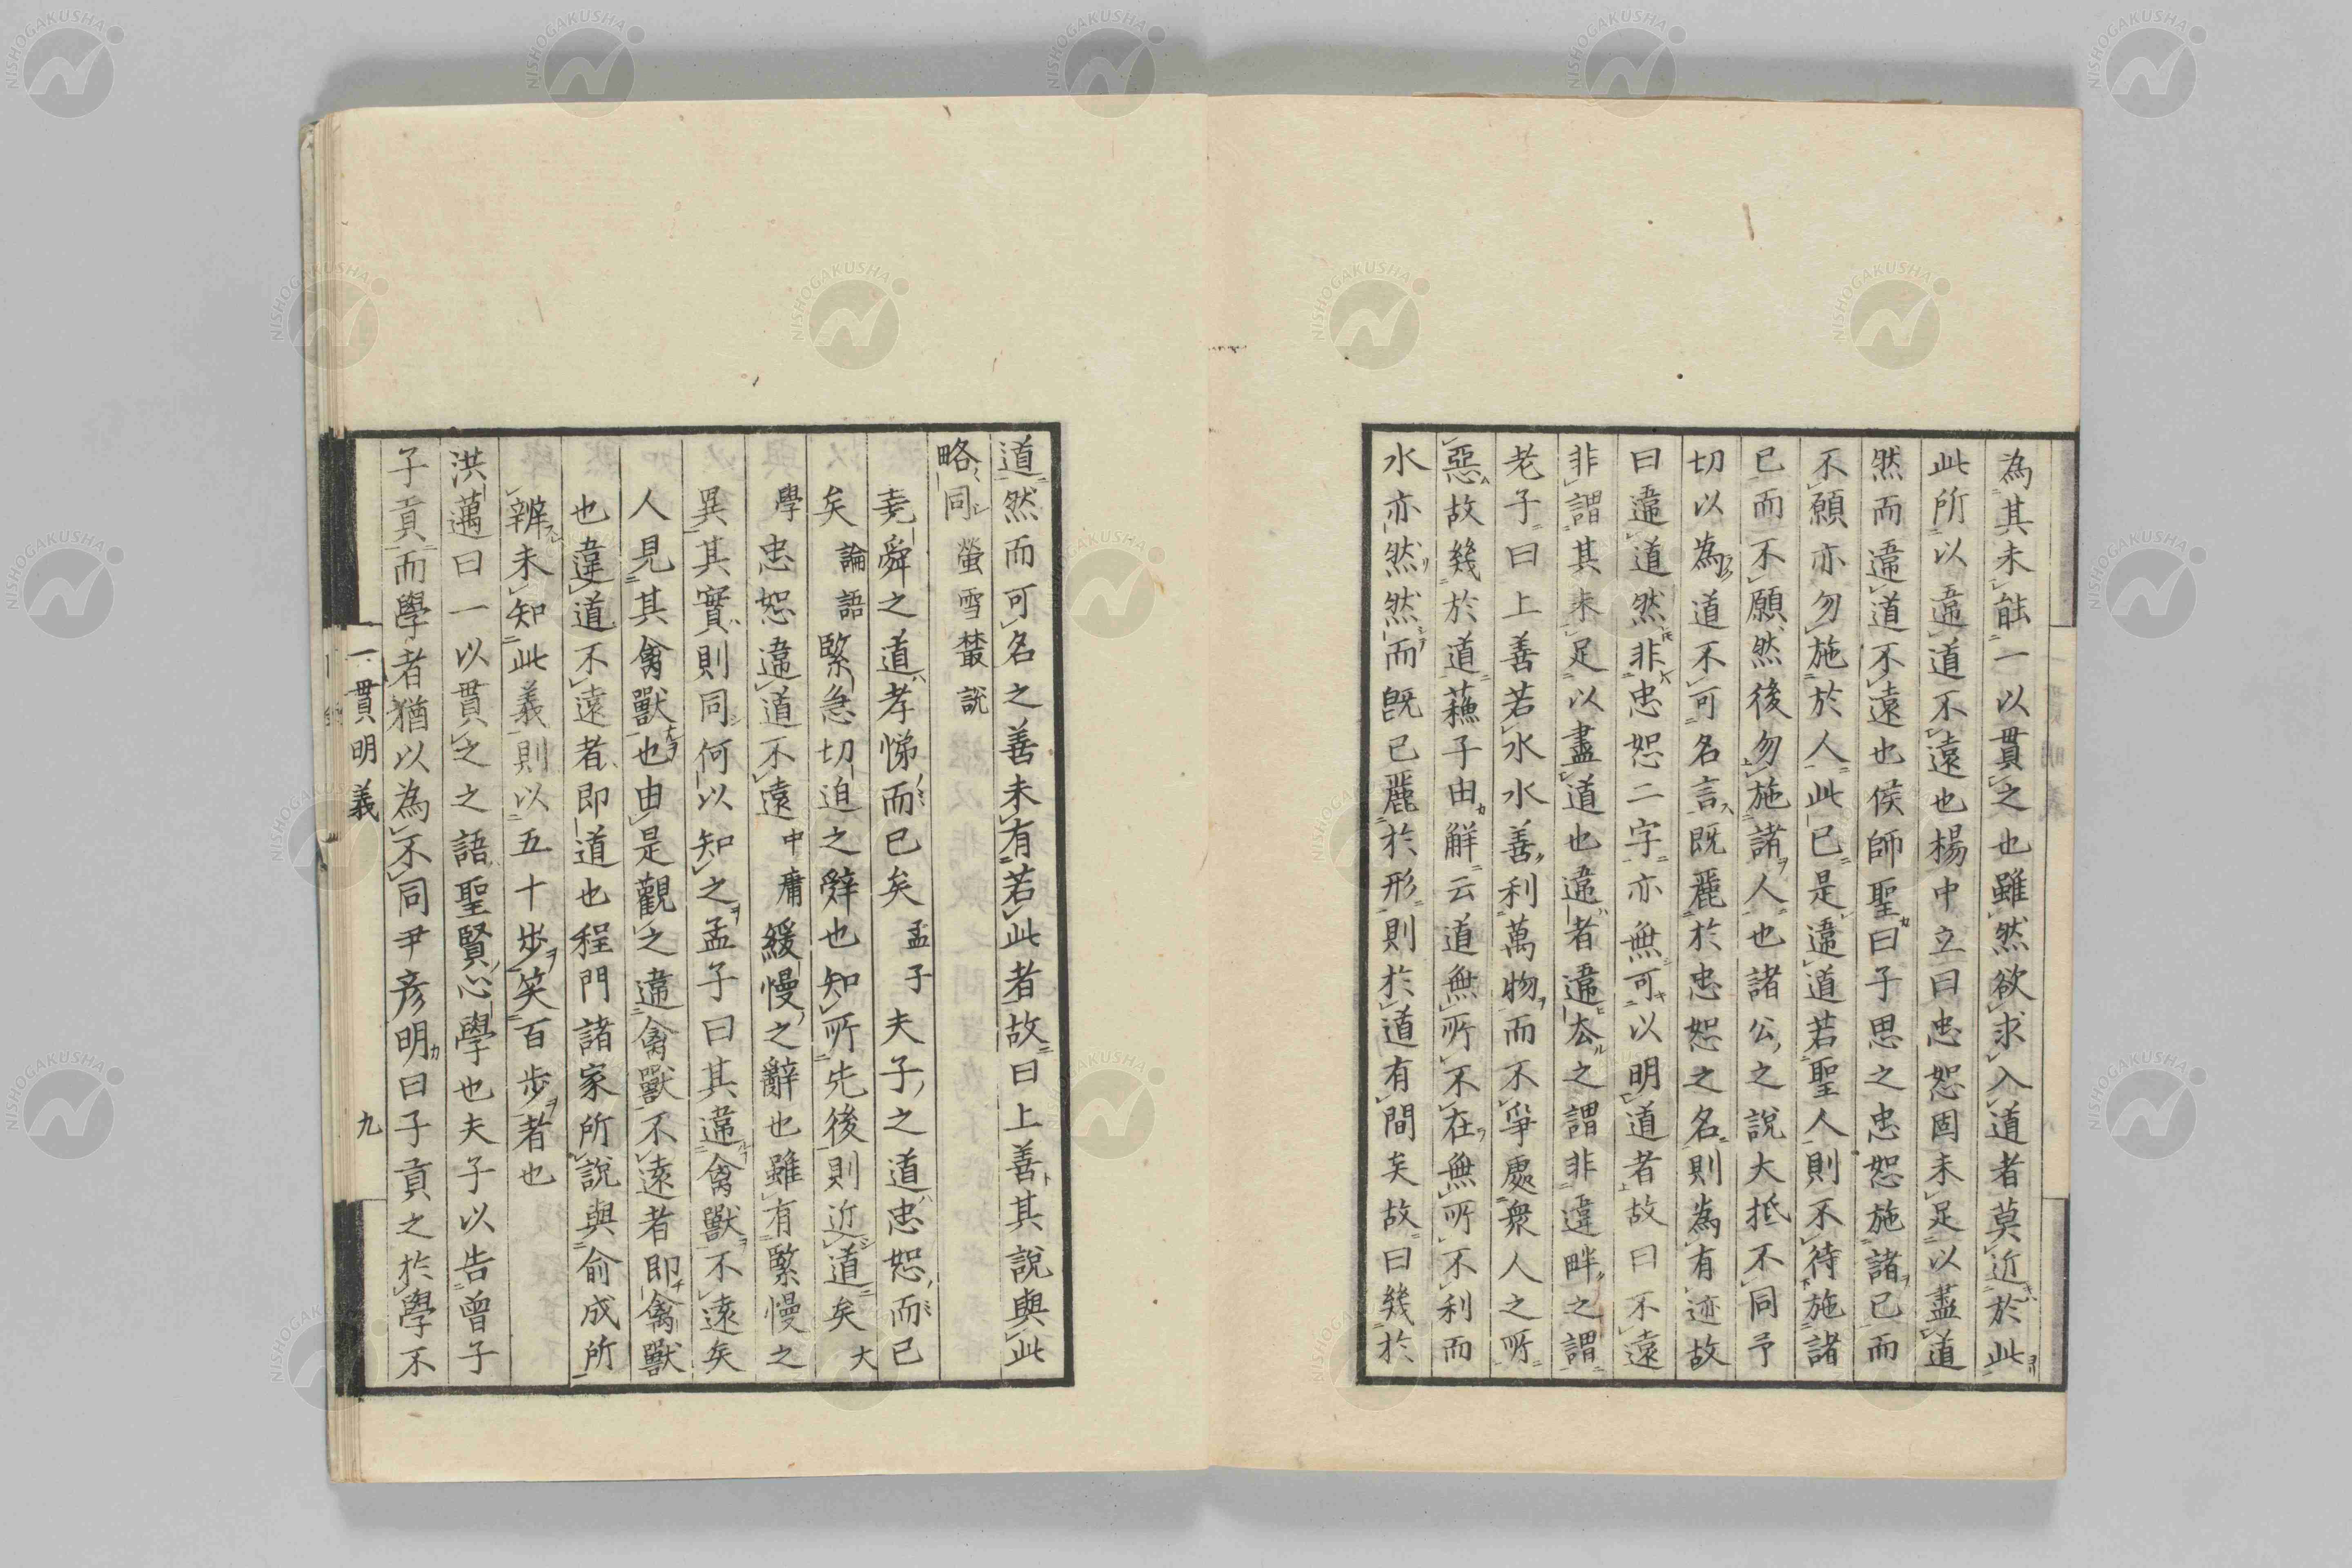 為其未能一以貫之也雖然欲求入道者莫近於此
此所以違道不遠也楊中立曰忠恕固未足以盡道
然而違道不遠也侯師聖曰子思之忠恕施諸已而
不願亦勿施於人此已是違道若聖人則不待施諸
已而不願然後勿施諸人也諸公之說大抵不同予
切以為道不可名言既麗於忠恕之名則為有迹故
曰違道然非忠恕二字亦無可以明道者故曰不遠
非謂其未足以盡道也違者違去之謂非違畔之謂
老子曰上善若水水善利萬物而不爭處衆人之所
惡故幾於道蘓子由解云道無所不在無所不利而
水亦然然而既已麗於形則於道有間矣故曰幾於
道然而可名之善未有若此者故曰上善其說與此
略同 螢雪叢說
堯舜之道孝悌而已矣孟子夫子之道忠恕而已
矣論語緊急切迫之辭也知所先後則近道矣大
學忠恕違道不遠中庸緩慢之辭也雖有緊慢之
異其實則同何以知之孟子曰其違禽獸不遠矣
人見其禽獸也由是觀之違禽獸不遠者即禽獸
也違道不遠者即道也程門諸家所說與俞成所
辨未知此義則以五十步笑百步者也
洪邁曰一以貫之之語聖賢心學也夫子以告曾子
子貢而學者猶以為不同尹彦明曰子貢之於學不
一貫明義 九
NISHOGAKUSHA